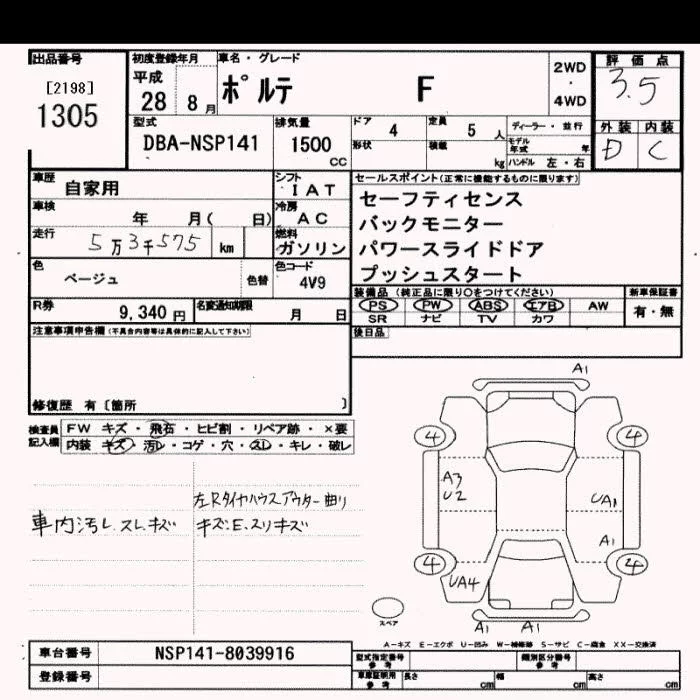 出品番号
[2198]
1305
初度登録年月
平成
28 8 月
車名・グレード
ポルテ F
2WD
・
4WD
評価点
3.5
外装 内装
D C
型式
DBA-NSP141
排気量
1500
CC
ドア 4
定員 5 人
形状
積載 kg
ディーラー・並行
モデル年式 年
ハンドル 左・右
車歴 自家用
シフト
IAT
車検 年 月( 日)
冷房
AC
走行 5万3千575 km
燃料
ガソリン
色 ベージュ
色替
色コード
4V9
R券 9,340 円
名変通知期限 月 日
セールスポイント(正常に機能するものに限ります)
セーフティセンス
バックモニター
パワースライドドア
プッシュスタート
装備品 (純正品に限り○をつけてください)
新車保証書
PS PW ABS エアB AW
SR ナビ TV カワ
有・無
後日品
注意事項申告欄(不具合内容等は具体的に記入して下さい)
修復歴 有〔箇所 〕
検査員
記入欄
FW キズ・飛石・ヒビ割・リペア跡・×要
内装 キズ・汚レ・コゲ・穴・スレ・キレ・破レ
左Rタイヤハウスアウター曲り
車内汚レ.スレ.キズ
キズ.E.スリキズ
A1
4
4
A3
U2
UA1
A1
4
4
UA4
A1 A1
スペア
A-キズ E-エクボ U-凹み W-補修跡 S-サビ C-腐食 XX-交換済
車台番号 NSP141-8039916
登録番号
型式指定番号
参考
類別区分番号
参考
車庫証明用
参考
長さ cm
幅 cm
高さ cm